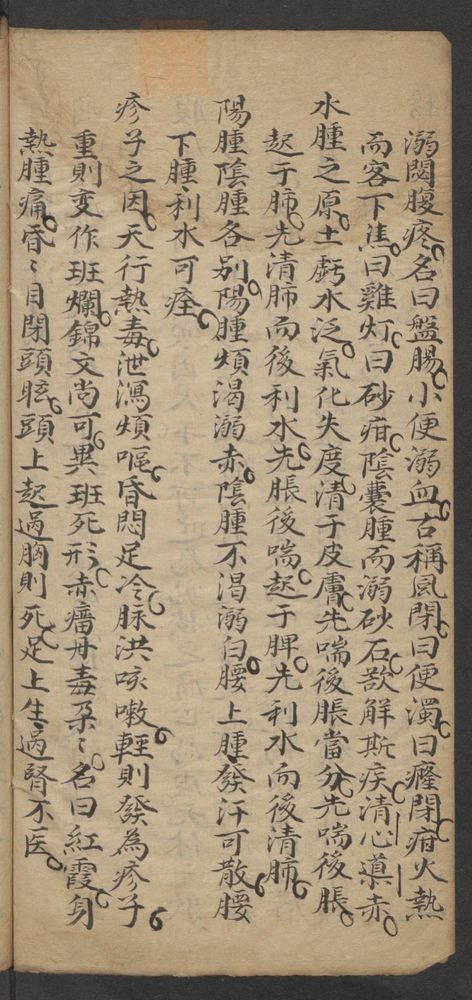 溺閟腹疼名曰盤腸小便溺血古稱風閉曰便濁曰癃閉疳火熱
而客下焦曰雞灯曰砂疳陰囊腫而溺砂石欲解斯疾清心導赤
水腫之原土虧水泛氣化失度清于皮膚先喘後脹當分先喘後脹
起于肺先清肺而後利水先脹後喘起于脾先利水而後清肺
陽腫陰腫各别陽腫煩渴溺赤陰腫不渴溺白腰上腫發汗可散腰
下腫利水可痊
疹子之因天行熱毒泄瀉煩嘔昏悶足冷脉洪咳嗽輕則發為疹子
重則变作班爛錦文尚可異班死形赤瘤丹毒朶〻名曰紅霞身
熱腫痛昏〻目閉頭眩頭上起過胸則死足上生過腎不医